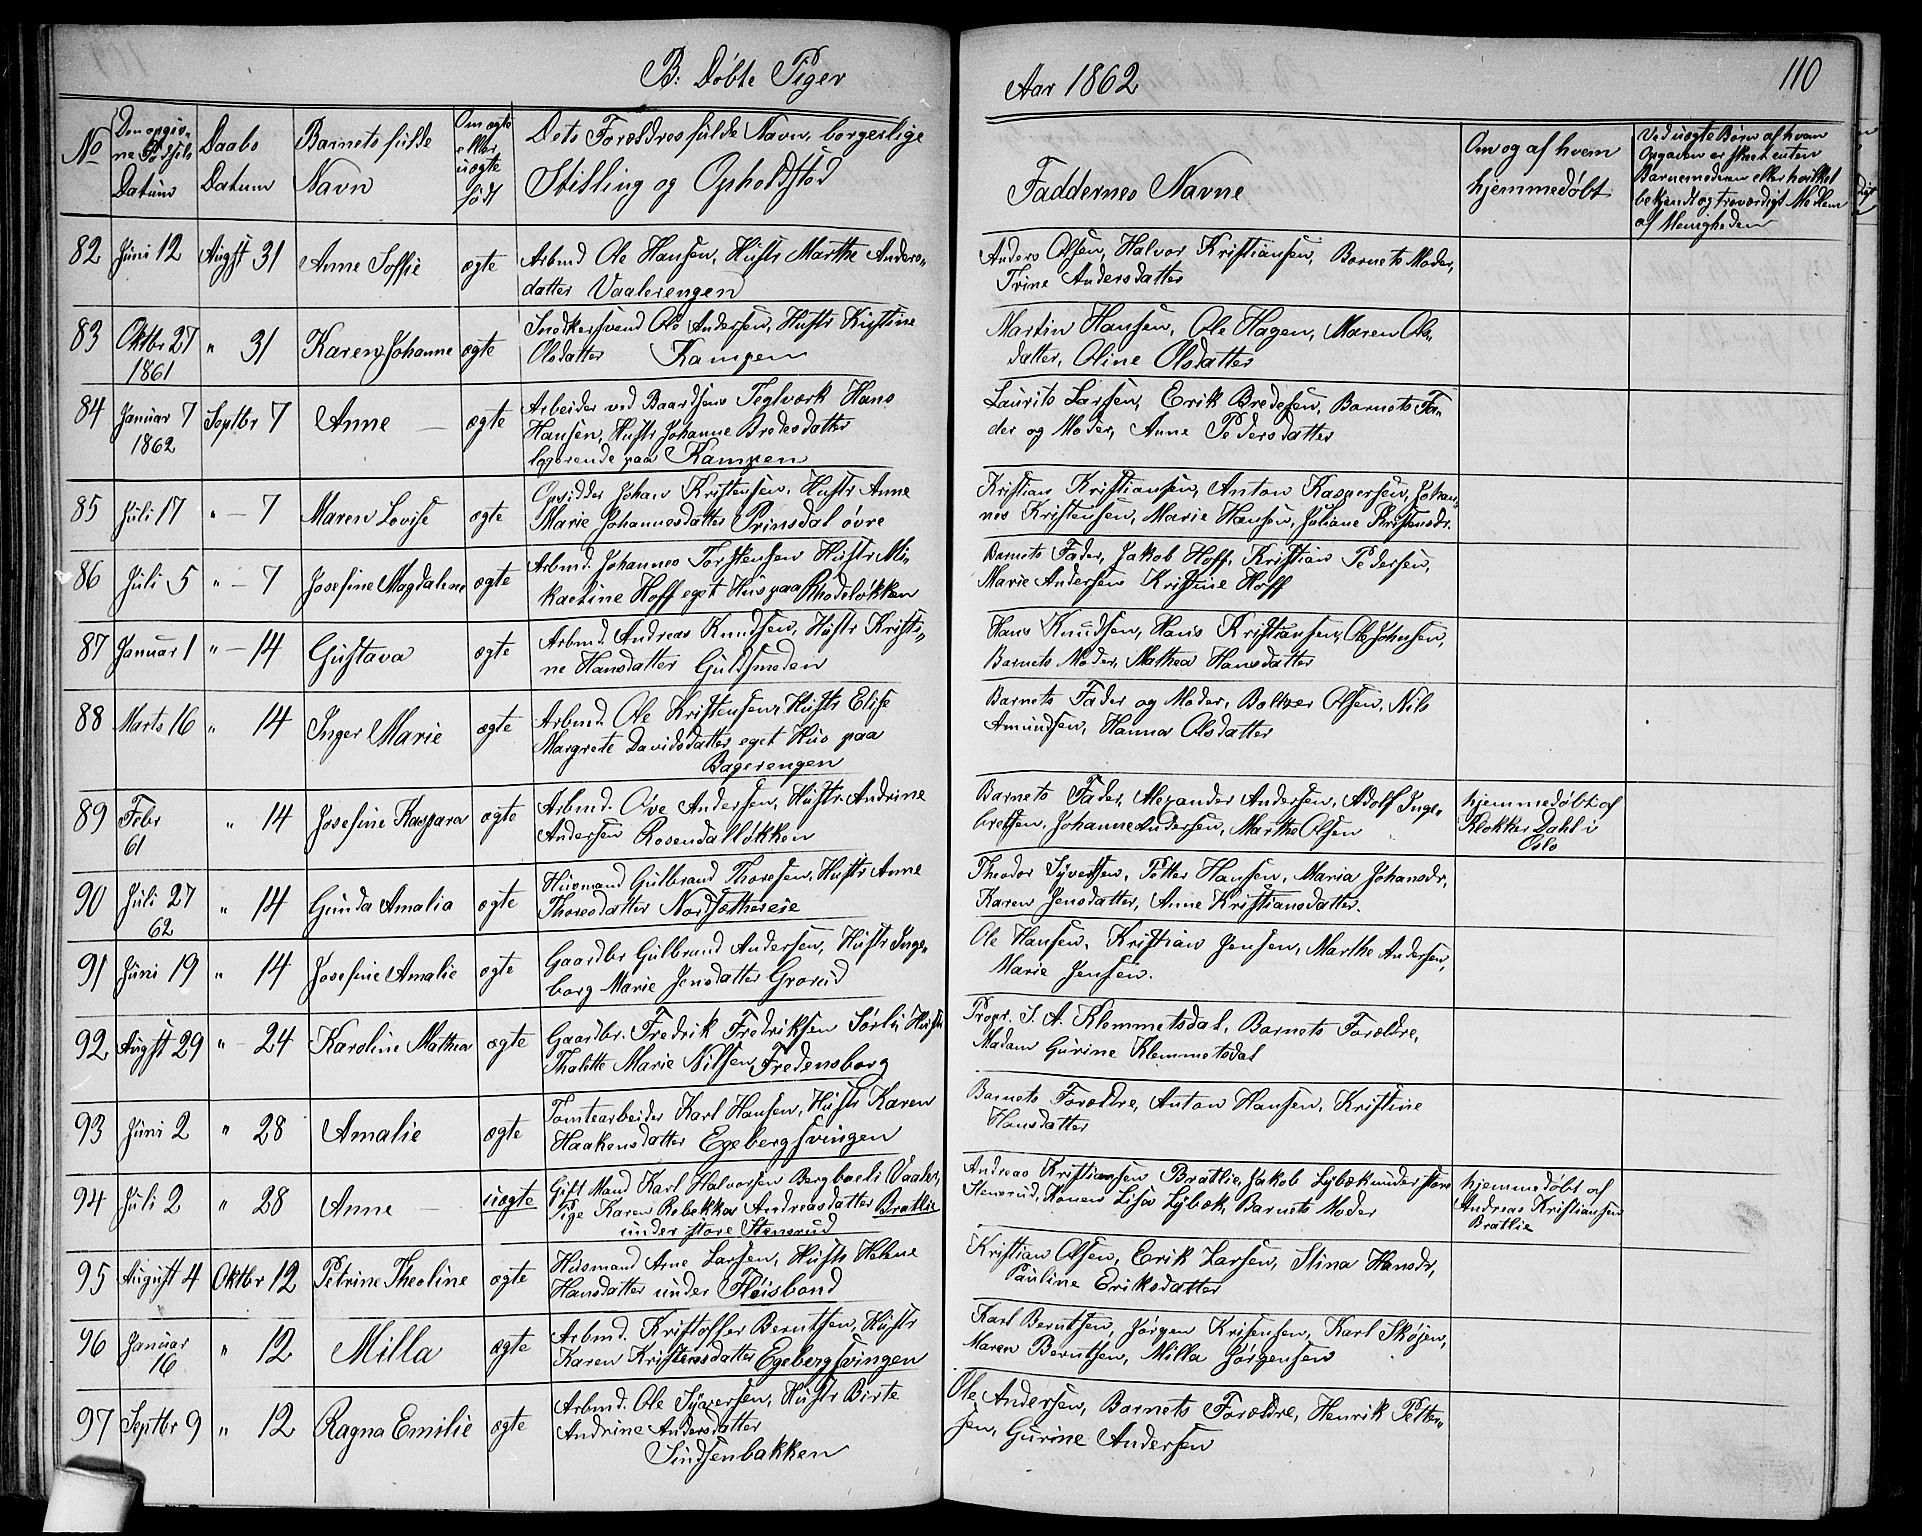 B: Døbte Piger
Aar 1862
110
No
Den opgiv-
ne Fødsels
Datum
Daabs
Datum
Barnets fulde
Navn
Om ægte
eller
uægte
født
Dets Forældres fulde Navn, borgerlige
Stilling og Opholdsted
Faddernes Navne
Om og af hvem
hjemmedøbt
Ved uægte Børn af hvem
Opgaven er skeet enten
Barnemoderen eller hvilket
bekjendt og troværdigt Medlem
af Menigheden
82 Juni 12 Augst 31 Anne Soffie ægte
Arbmd Ole Hansen, Hustr Marthe Anders-
datter Vaalerengen
Anders Olsen, Halvor Kristiansen, Barnets Moder,
Trine Andersdatter
83 Oktbr 27 " 31 Karen Johanne ægte
1861
Snedkersvend Ole Andersen, Hustr Kristine
Olsdatter Kampen
Martin Hansen, Ole Hagen, Maren Ols-
datter, Oline Olsdatter
84 Januar 7 Septbr 7 Anne — ægte
1862
Arbeider ved Baardsens Teglværk Hans
Hansen, Hustr Johanne Bredesdatter
logerende paa Kampen
Laurits Larsen, Erik Bredesen, Barnets Fa-
der og Moder, Anne Pedersdatter
85 Juli 17 " — 7 Maren Lovise ægte
Opsidder Johan Kristensen, Hustr Anne
Marie Johannesdatter Prinsdal øvre
Kristian Kristiansen, Anton Kaspersen, Johan-
nes Kristensen, Marie Hansen, Juliane Kristensdr.
86 Juli 5 " — 7 Josefine Magdalene ægte
Arbmd. Johannes Torstensen Hustr Mi-
kaeline Hoff eget Hus paa Rhodeløkken
Barnets Fader, Jakob Hoff, Kristian Pedersen,
Marie Andersen Kristine Hoff
87 Januar 1 " — 14 Gustava ægte
Arbmd. Andreas Knudsen, Hustr Kristi-
ne Hansdatter Guldsmeden
Hans Knudsen, Hans Kristiansen, Ole Johnsen,
Barnets Moder, Mathea Hansdatter
88 Marts 16 " 14 Inger Marie ægte
Arbmd. Ole Kristensen, Hustr Elise
Margrete Davidsdatter eget Hus paa
Bagerengen
Barnets Fader og Moder, Bolther Olsen, Nils
Amundsen, Hanna Olsdatter
89 Febr " 14 Josefine Kaspara ægte
61
Arbmd. Ove Andersen, Hustr. Andrine
Andersen Rosendalløkken
Barnets Fader, Alexander Andersen, Adolf Inge-
bretsen, Johanne Andersen, Marthe Olsen
hjemmedøbt af
Klokker Dahl i
Oslo
90 Juli 27 " 14 Gunda Amalia ægte
62
Husmand Gulbrand Thoresen, Hustr Anne
Thoresdatter Nordsethereie
Theodor Syversen, Petter Hansen, Maria Johansdr,
Karen Jensdatter, Anne Kristiansdatter.
91 Juni 19 " 14 Josefine Amalie ægte
Gaardbr Gulbrand Andersen, Hustr Inge-
borg Marie Jensdatter Grorud
Ole Hansen, Kristian Jensen, Marthe Andersen,
Marie Jensen.
92 Augst 29 " — 24 Karoline Mathea ægte
Gaardbr. Fredrik Fredriksen Sørli, Hustr
Thalette Marie Nilsen, Fredensborg
Propr. S. A. Klemmetsdal, Barnets Forældre,
Madam Gurine Klemmetsdal
93 Juni 2 " 28 Amalie ægte
Tomtearbeider Karl Hansen, Hustr Karen
Haakensdatter Egebergsvingen
Barnets Forældre, Anton Hansen, Kristine
Hansdatter
94 Juli 2 " 28 Anne — uægte
Gift Mand Karl Halvorsen Vaaler,
Pige Karen Rebekka Andreasdatter Bratlie
under store Stensrud
Andreas Kristiansen Bratlie, Jakob Lybæk under store
Stensrud, Konen Lisa Lybæk, Barnets Moder
hjemmedøbt af
Andreas Kristiansen
Bratlie
95 August 4 Oktbr 12 Petrine Theoline ægte
Husmand Arne Larsen, Hustr Helene
Hansdatter under Fløisbond
Kristian Olsen, Erik Larsen, Stina Hansdr,
Pauline Eriksdatter
96 Januar " 12 Milla ægte
16
Arbmd. Kristoffer Berntsen, Hustr
Karen Kristensdatter Egebergsvingen
Karl Berntsen, Jørgen Krisensen, Karl Skøien,
Maren Berntsen, Milla Jørgensen
97 Septbr 9 " 12 Ragna Emilie ægte
Arbmd. Ole Syversen, Hustr Birte
Andrine Andersdatter
Sindsenbakken
Ole Andersen, Barnets Forældre, Henrik Petter-
sen, Gurine Andersen